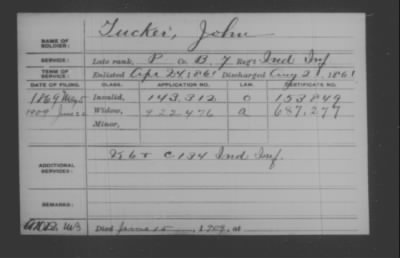 NAME OF SOLDIER: Tucker, John
SERVICE: Late rank, P Co. B, 7 Reg't Ind Inf
TERM OF SERVICE: Enlisted Apr 24, 1861 Discharged Aug 2, 1861
DATE OF FILING. CLASS. APPLICATION NO. LAW. CERTIFICATE NO.
1869 May 5 Invalid, 143,312 O 153849
1909 June 2 Widow, 922,476 a 687,277
Minor,
ADDITIONAL SERVICES: C 134 Ind Inf.
REMARKS:
Died June 15, 1909, at